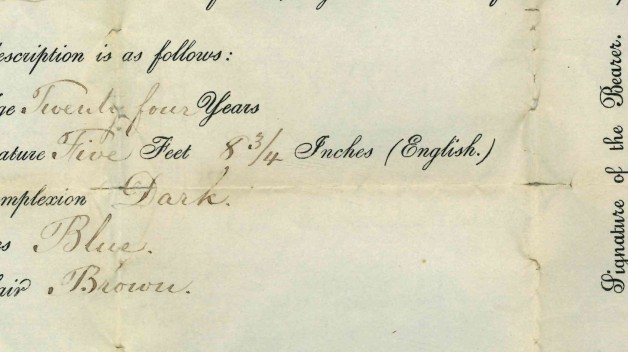 escription is as follows:
ge Twenty four Years
ature Five Feet 8 3/4 Inches (English.)
mplexion Dark.
es Blue.
air Brown.
Signature of the Bearer.